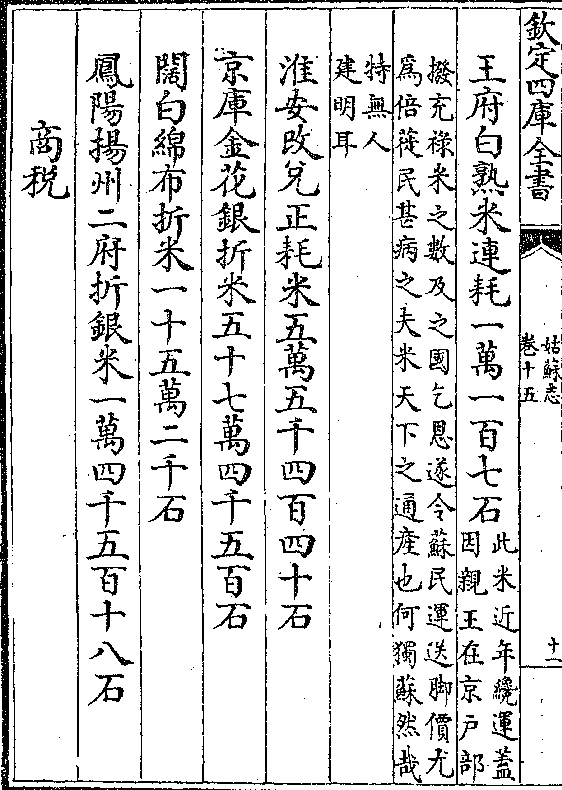 欽定四庫全書
姑蘇志
卷十五
十一
王府白熟米連耗一萬一百七石此米近年纔運蓋
因親王在京戶部
撥充祿米之數及之國乞恩遂令蘇民運送脚價尤
爲倍蓰民甚病之夫米天下之通産也何獨蘇然哉
特無人
建明耳
淮安改兌正耗米五萬五千四百四十石
京庫金花銀折米五十七萬四千五百石
闊白綿布折米一十五萬二千石
鳳陽揚州二府折銀米一萬四千五百十八石
商稅